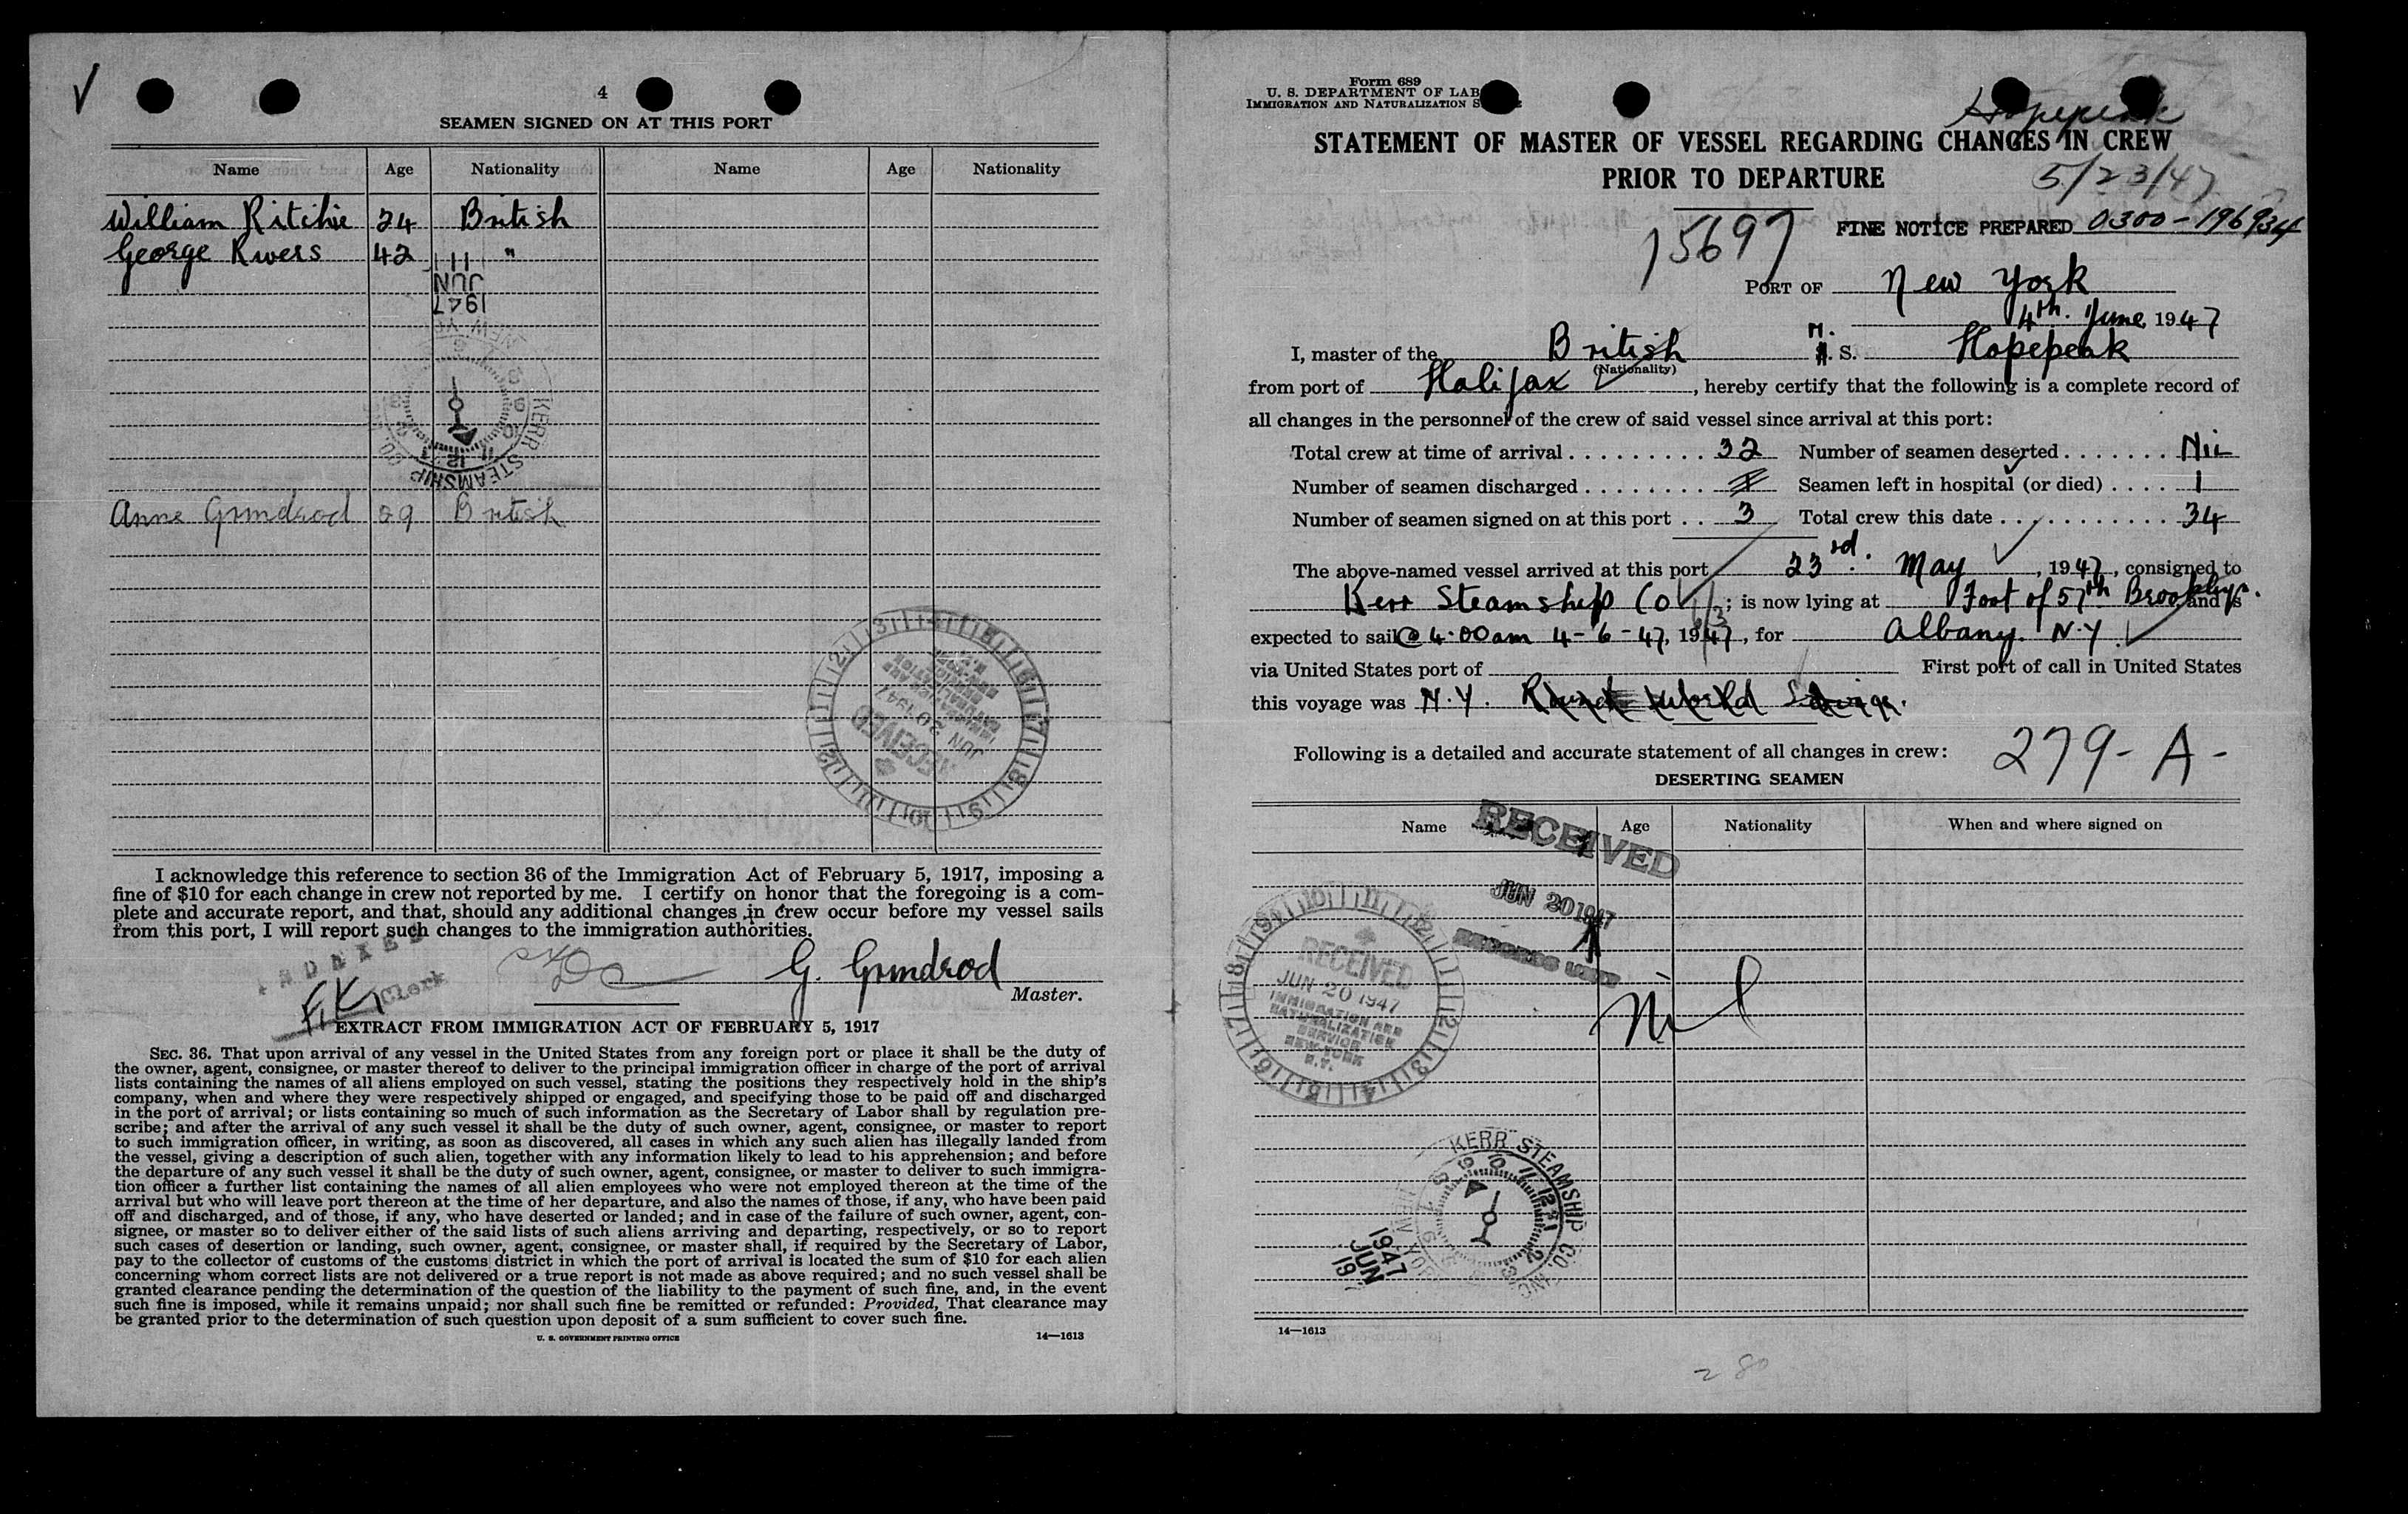 4
SEAMEN SIGNED ON AT THIS PORT
Name Age Nationality Name Age Nationality
William Ritchie 24 British
George Rivers 42 "
JUN
1947
KERR STEAMSHIP CO.
Anne Grindrod 29 British
RECEIVED
JUN 20 1947
IMMIGRATION AND
NATURALIZATION
I acknowledge this reference to section 36 of the Immigration Act of February 5, 1917, imposing a
fine of $10 for each change in crew not reported by me. I certify on honor that the foregoing is a com-
plete and accurate report, and that, should any additional changes in crew occur before my vessel sails
from this port, I will report such changes to the immigration authorities.
G. Grindrod
Master.
INDEXED
F.K. Clerk
EXTRACT FROM IMMIGRATION ACT OF FEBRUARY 5, 1917
SEC. 36. That upon arrival of any vessel in the United States from any foreign port or place it shall be the duty of
the owner, agent, consignee, or master thereof to deliver to the principal immigration officer in charge of the port of arrival
lists containing the names of all aliens employed on such vessel, stating the positions they respectively hold in the ship's
company, when and where they were respectively shipped or engaged, and specifying those to be paid off and discharged
in the port of arrival; or lists containing so much of such information as the Secretary of Labor shall by regulation pre-
scribe; and after the arrival of any such vessel it shall be the duty of such owner, agent, consignee, or master to report
to such immigration officer, in writing, as soon as discovered, all cases in which any such alien has illegally landed from
the vessel, giving a description of such alien, together with any information likely to lead to his apprehension; and before
the departure of any such vessel it shall be the duty of such owner, agent, consignee, or master to deliver to such immigra-
tion officer a further list containing the names of all alien employees who were not employed thereon at the time of the
arrival but who will leave port thereon at the time of her departure, and also the names of those, if any, who have been paid
off and discharged, and of those, if any, who have deserted or landed; and in case of the failure of such owner, agent, con-
signee, or master so to deliver either of the said lists of such aliens arriving and departing, respectively, or so to report
such cases of desertion or landing, such owner, agent, consignee, or master shall, if required by the Secretary of Labor,
pay to the collector of customs of the customs district in which the port of arrival is located the sum of $10 for each alien
concerning whom correct lists are not delivered or a true report is not made as above required; and no such vessel shall be
granted clearance pending the determination of the question of the liability to the payment of such fine, and, in the event
such fine is imposed, while it remains unpaid; nor shall such fine be remitted or refunded: Provided, That clearance may
be granted prior to the determination of such question upon deposit of a sum sufficient to cover such fine.
U. S. GOVERNMENT PRINTING OFFICE 14—1613
Form 689
U. S. DEPARTMENT OF LAB
IMMIGRATION AND NATURALIZATION S
Hopepeak
STATEMENT OF MASTER OF VESSEL REGARDING CHANGES IN CREW
PRIOR TO DEPARTURE
5/23/47
15697
FINE NOTICE PREPARED 0300-196934
PORT OF New York
4th. June, 1947
I, master of the British M. S. Hopepeak
(Nationality)
from port of Halifax, hereby certify that the following is a complete record of
all changes in the personnel of the crew of said vessel since arrival at this port:
Total crew at time of arrival . . . . . . . . . 32 Number of seamen deserted . . . . . . . Nil
Number of seamen discharged . . . . . . . . Seamen left in hospital (or died) . . . . 1
Number of seamen signed on at this port . . 3 Total crew this date . . . . . . . . . . . 34
The above-named vessel arrived at this port 23rd. May, 1947, consigned to
Kerr Steamship Co; is now lying at Foot of 57th Brooklyn. and is
expected to sail @ 4.00am 4-6-47, 1947, for Albany. N.Y.
via United States port of First port of call in United States
this voyage was N.Y. Round World Service.
Following is a detailed and accurate statement of all changes in crew: 279-A-
DESERTING SEAMEN
Name Age Nationality When and where signed on
RECEIVED
JUN 20 1947
RECORDS UNIT
RECEIVED
JUN 20 1947
IMMIGRATION AND
NATURALIZATION
SERVICE
NEW YORK
N.Y.
Nil
KERR STEAMSHIP CO. INC.
NEW YORK
1947
JUN
19
14—1613
280